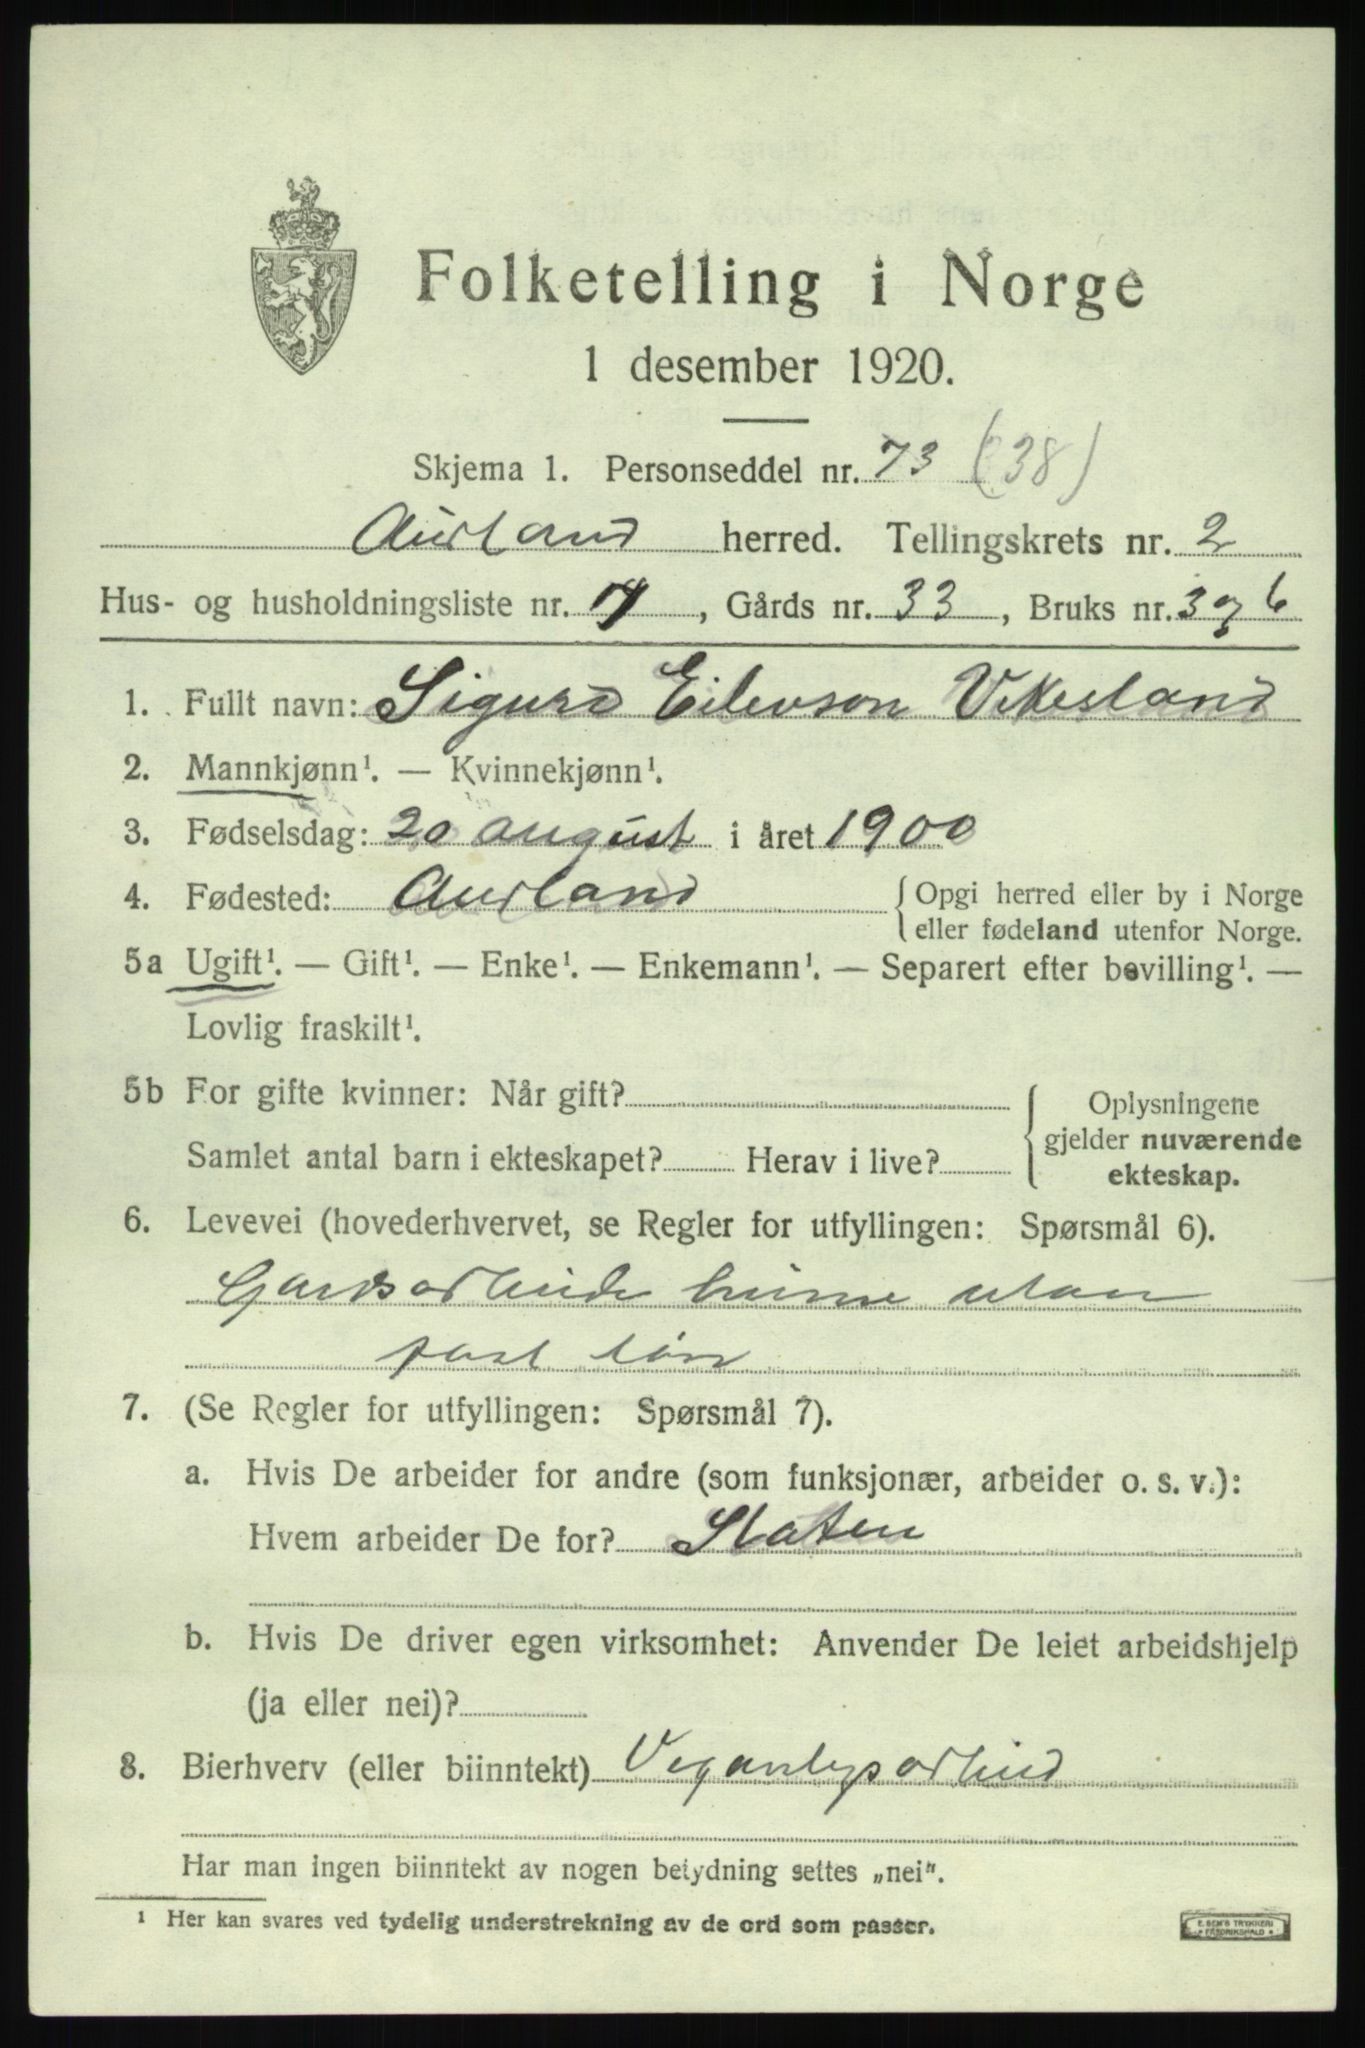 Folketelling i Norge
1 desember 1920.
Skjema 1. Personseddel nr. 73 (38)
Aurland herred. Tellingskrets nr. 2
Hus- og husholdningsliste nr. , Gårds nr. 33, Bruks nr. 3 og 6
1. Fullt navn: Sigurd Eilevson Vikesland
2. Mannkjønn¹. — Kvinnekjønn¹.
3. Fødselsdag: 20 august i året 1900
4. Fødested: Aurland { Opgi herred eller by i Norge
eller fødeland utenfor Norge.
5a Ugift¹. — Gift¹. — Enke¹. — Enkemann¹. — Separert efter bevilling¹. —
Lovlig fraskilt¹.
5b For gifte kvinner: Når gift?
Samlet antal barn i ekteskapet? Herav i live?
Oplysningene
gjelder nuværende
ekteskap.
6. Levevei (hovederhvervet, se Regler for utfyllingen: Spørsmål 6).
Gardsarbeide heime utan
fast løn
7. (Se Regler for utfyllingen: Spørsmål 7).
a. Hvis De arbeider for andre (som funksjonær, arbeider o. s. v.):
Hvem arbeider De for? Staten
b. Hvis De driver egen virksomhet: Anvender De leiet arbeidshjelp
(ja eller nei)?
8. Bierhverv (eller biinntekt) Veganlegsarbeid
Har man ingen biinntekt av nogen betydning settes „nei".
¹ Her kan svares ved tydelig understrekning av de ord som passer.
E. SEM'S TRYKKERI
FREDRIKSHALD